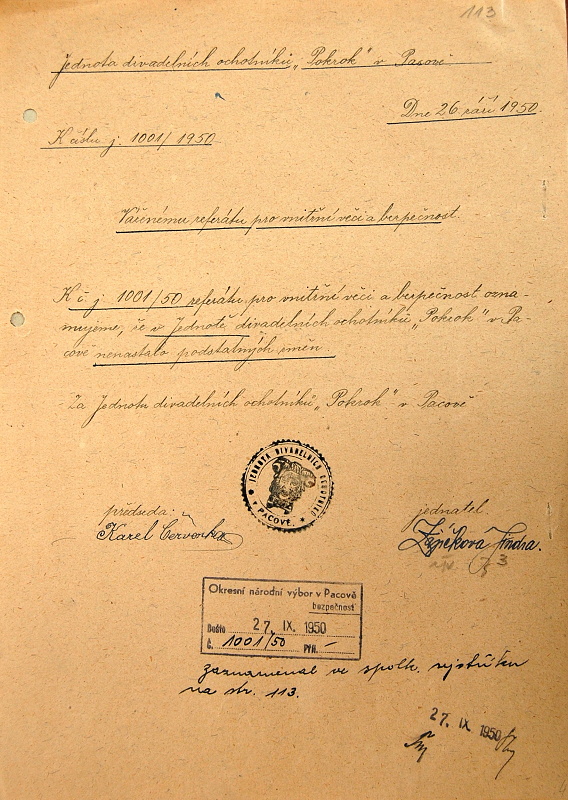 113
Jednota divadelních ochotníků „Pokrok" v Pacově
Dne 26 září 1950.
K číslu j. 1001/1950.
Váženému referátu pro vnitřní věci a bezpečnost.
K č. j. 1001/50 referátu pro vnitřní věci a bezpečnost ozna-
mujeme, že v Jednotě divadelních ochotníků „Pokrok" v Pa-
cově nenastalo podstatných změn.
Za Jednotu divadelních ochotníků „Pokrok" v Pacově
JEDNOTA DIVADELNÍCH OCHOTNÍKŮ
V PACOVĚ.
předseda: jednatel.
Karel Červenka Jindra.
Okresní národní výbor v Pacově
bezpečnost
Došlo 27. IX. 1950
č. 1001/50 Příl. –
zaznamenal ve spolk. rejstříku
na str. 113.
27. IX. 1950